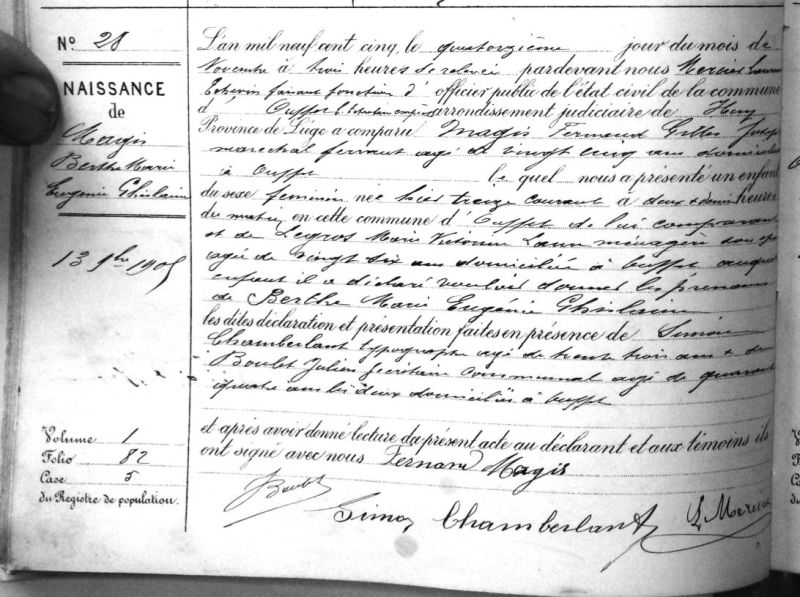 N° 28
NAISSANCE
de
Magis
Berthe Marie
Eugénie Ghislaine
13 9bre 1905
Volume 1
Folio 82
Case 5
du Registre de population.
L'an mil neuf cent cinq, le quatorzième jour du mois de
Novembre à trois heures de relevée pardevant nous
Echevin faisant fonction d'officier public de l'état civil de la commune
d' Ouffet arrondissement judiciaire de Huy
Province de Liége a comparu Magis Fernand Gilles Joseph
maréchal ferrant agé de vingt cinq ans domicilié
à Ouffet le quel nous a présenté un enfant
du sexe feminin née hier treize courant à deux heures
du matin, en cette commune d'Ouffet de lui comparant
et de Legros Marie Victorine Laure ménagère son
agée de vingt six ans domiciliée à Ouffet auquel
enfant il a déclaré vouloir donner les prénoms
de Berthe Marie Eugénie Ghislaine
les dites déclaration et présentation faites en présence de Simon
Chamberlant typographe agé de trente trois ans & de
Boulet Julien secrétaire communal agé de quarante
quatre ans les deux domiciliés à Ouffet
et après avoir donné lecture du présent acte au déclarant et aux témoins ils
ont signé avec nous Fernand Magis
JBoulet
Simon Chamberlant